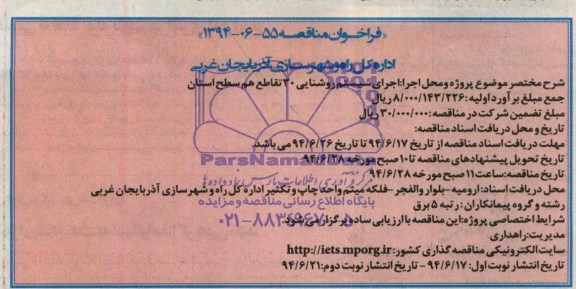 «فراخوان مناقصه ۵۵-۰۶-۱۳۹۴»
اداره کل راه و شهرسازی آذربایجان غربی
شرح مختصر موضوع پروژه ومحل اجرا:اجرای سیستم روشنایی ۳۰ تقاطع هم سطح استان
جمع مبلغ برآورد اولیه :۸/۰۰۰/۱۴۳/۲۲۶ ریال
مبلغ تضمین شرکت در مناقصه:۳۰/۰۰۰/۰۰۰ ریال
تاریخ و محل دریافت اسناد مناقصه:
مهلت دریافت اسناد مناقصه: از تاریخ ۹۴/۶/۱۷ تا تاریخ ۹۴/۶/۲۶ می باشد.
تاریخ تحویل پیشنهادهای مناقصه تا ۱۰ صبح مورخه ۹۴/۶/۲۸
تاریخ مناقصه:ساعت ۱۱ صبح مورخه ۹۴/۶/۲۸
محل دریافت اسناد: ارومیه -بلوار والفجر -فلکه میثم واحد چاپ و تکثیر اداره کل راه و شهرسازی آذربایجان غربی
رشته و گروه پیمانکاران : رتبه ۵ برق
شرایط اختصاصی پروژه: این مناقصه با ارزیابی ساده برگزار می شود.
مدیریت:راهداری
سایت الکترونیکی مناقصه گذاری کشور: http://iets.mporg.ir
تاریخ انتشار نوبت اول: ۹۴/۶/۱۷ - تاریخ انتشار نوبت دوم: ۹۴/۶/۲۱
ParsNamad
پایگاه اطلاع رسانی مناقصه و مزایده